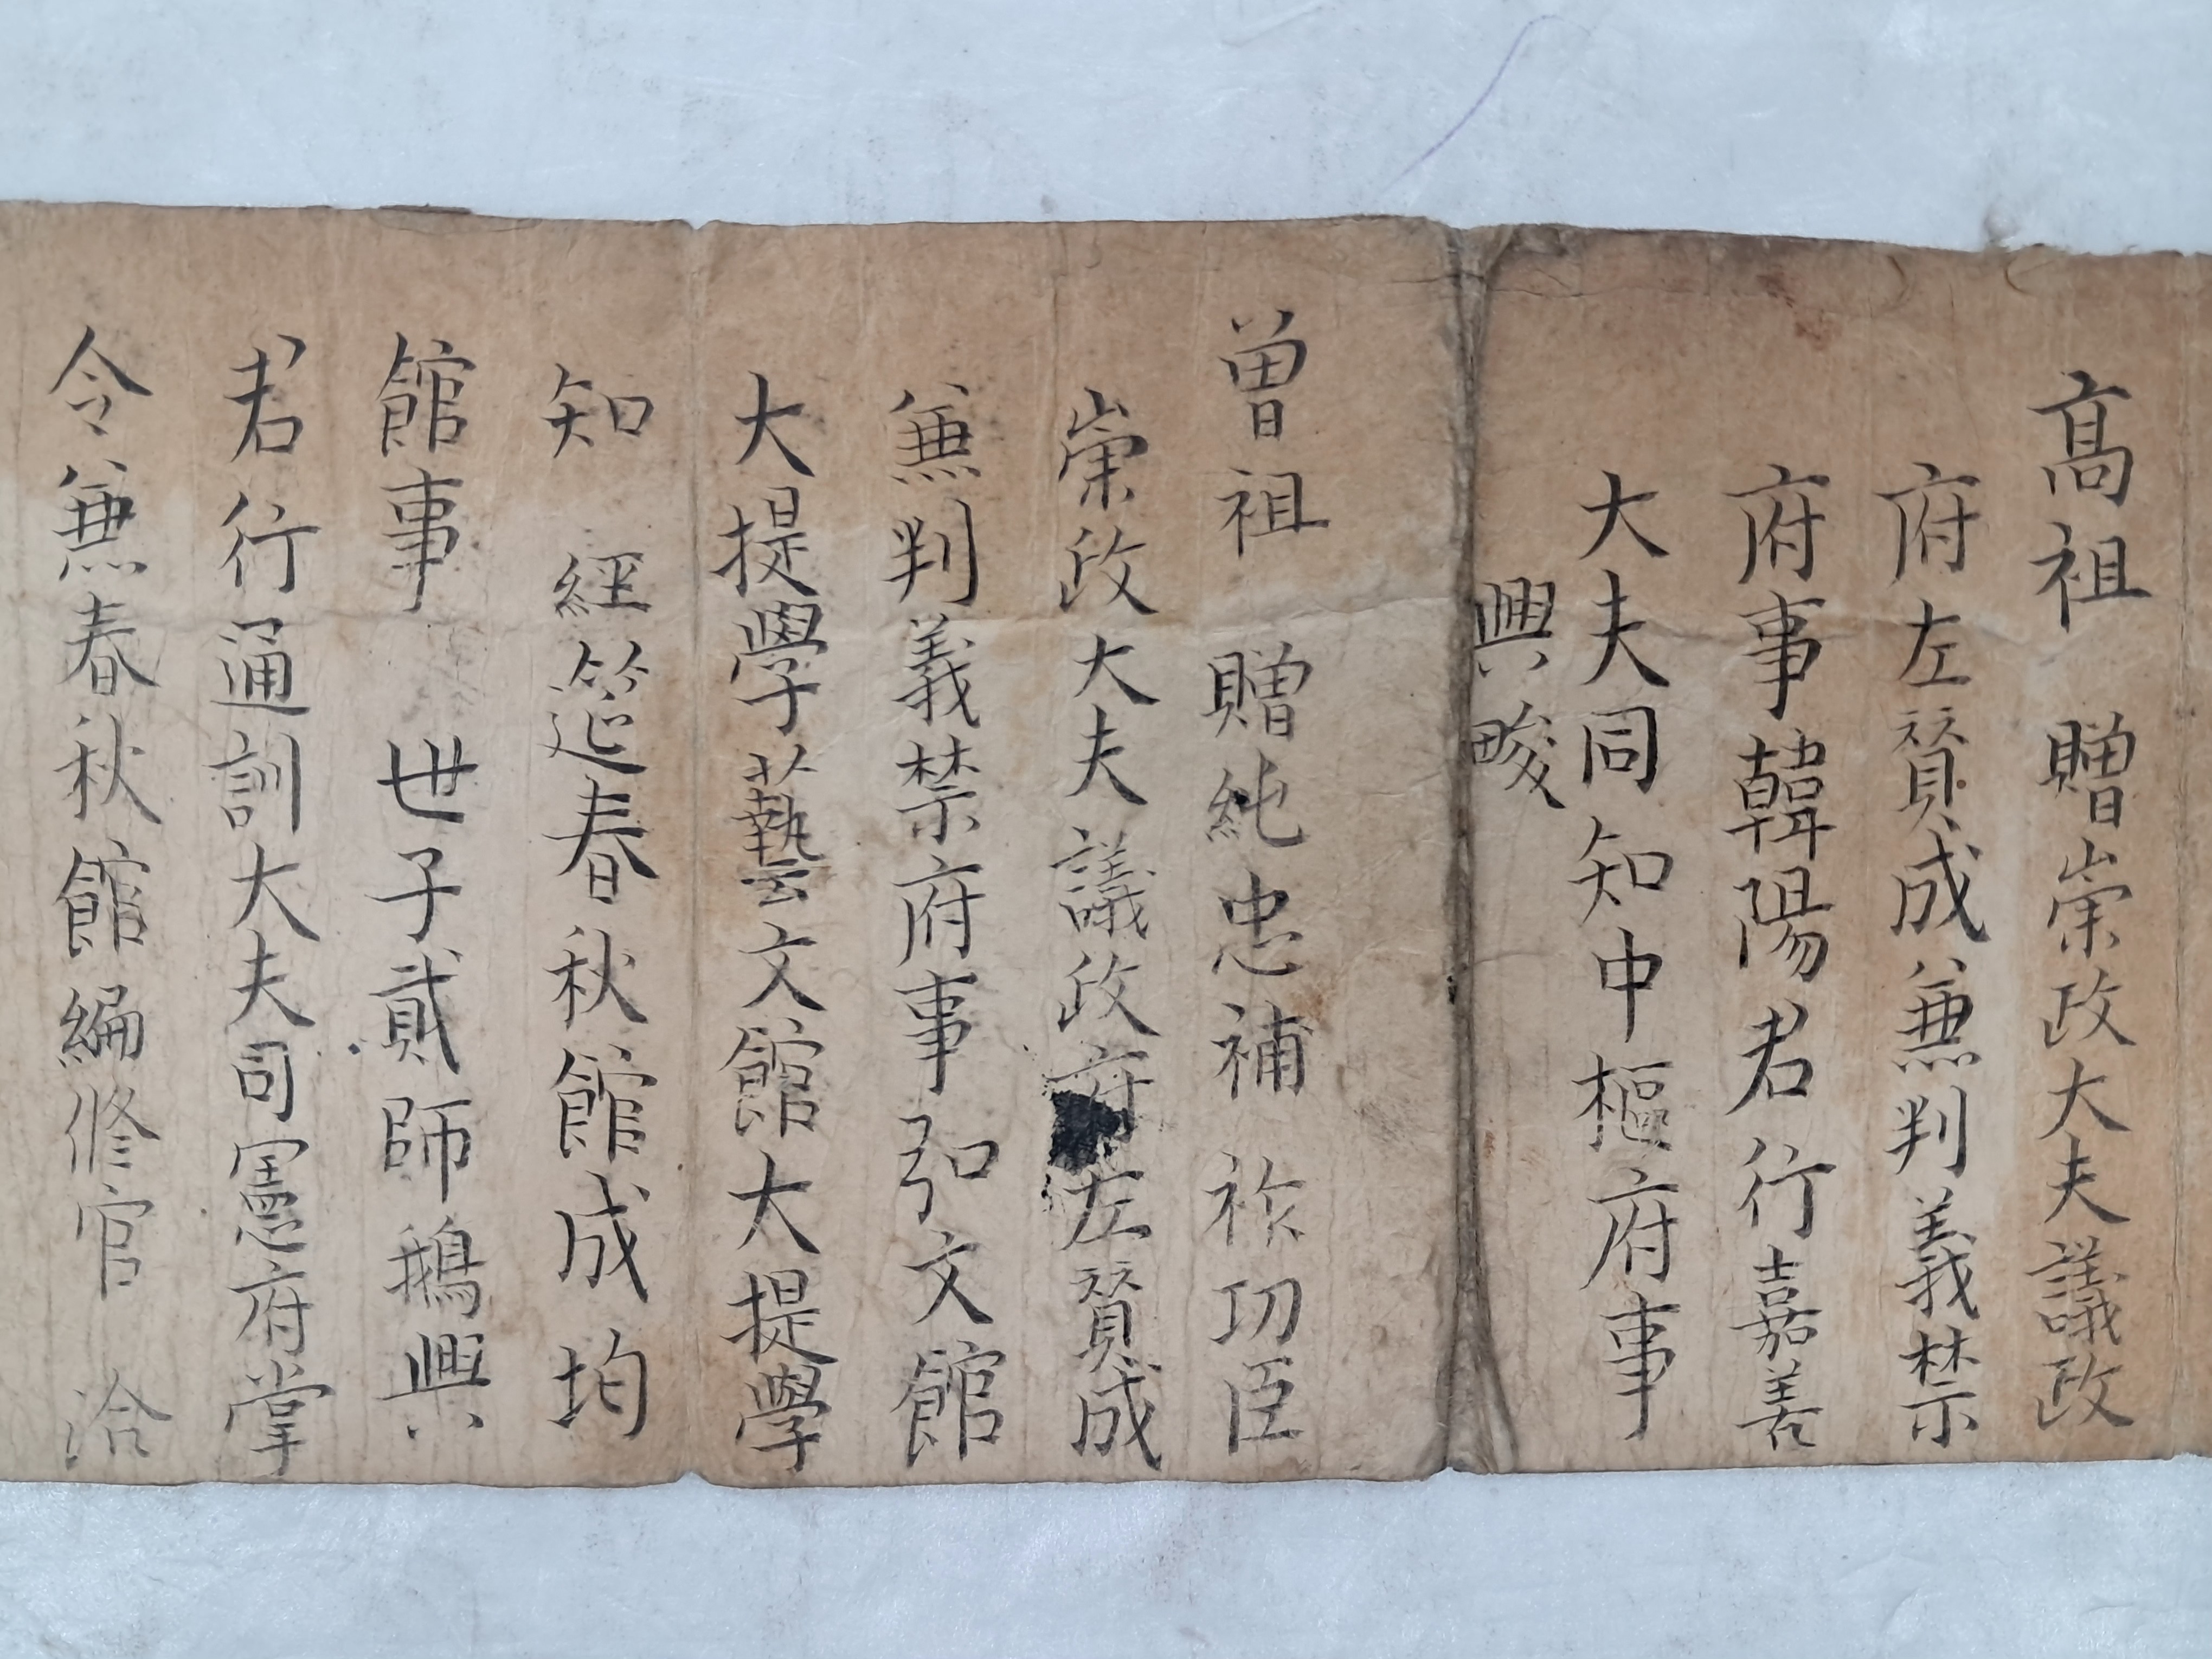 高祖 贈崇政大夫議政
府左贊成兼判義禁
府事韓陽君行嘉善
大夫同知中樞府事
興畯
曾祖 贈純忠補祚功臣
崇政大夫議政府左贊成
兼判義禁府事弘文館
大提學藝文館大提學
知 經筵春秋館成均
館事 世子貳師鵝興
君行通訓大夫司憲府掌
令兼春秋館編修官 洽